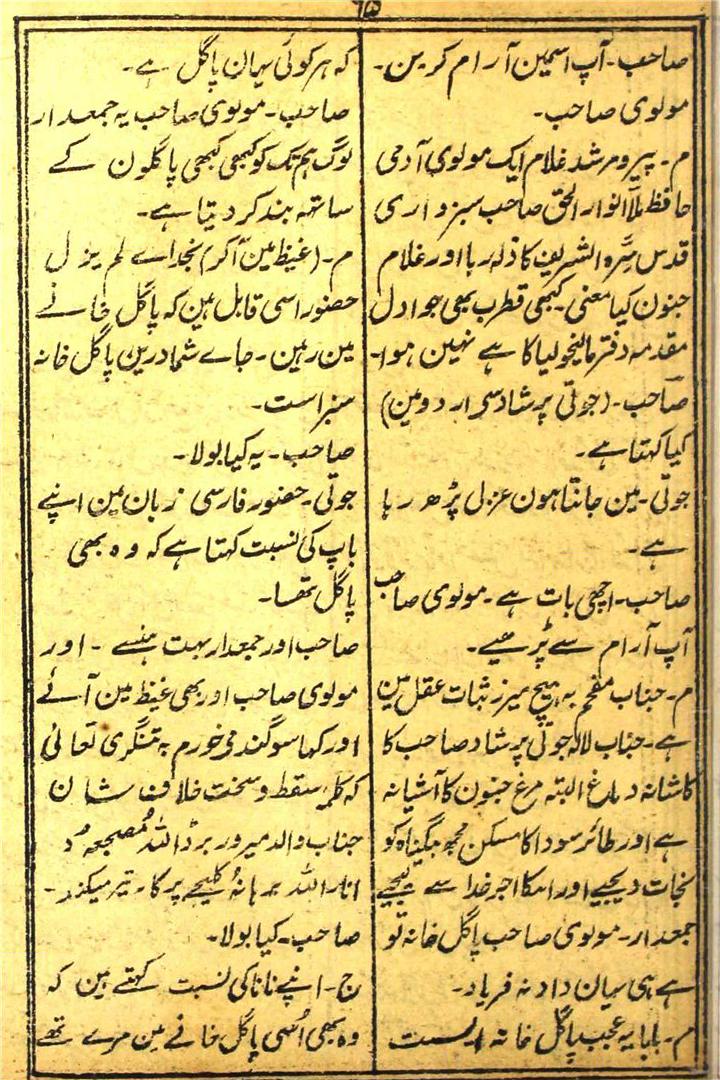 ۶۱۵
صاحب۔ آپ اسمین آرام کرین۔
مولوی صاحب۔
م۔ پیرومرشد غلام ایک مولوی آدمی
حافظ ملا انوار الحق صاحب سبزواری
قدس سرہ الشریف کا ذلہ ربا اور غلام
جنون کیا معنی۔ کبھی قطرب بھی جو اول
مقدمہ دفتر مالیخولیا کا ہے نہین ہوا۔
صاحب۔ (جوتی پرشاد سے اردو مین)
کیا کہتا ہے۔
جوتی۔ مین جانتا ہون غزل پڑھ رہا
ہے۔
صاحب۔ اچھی بات ہے۔ مولوی صاحب
آپ آرام سے پڑیے۔
م۔ جناب مفخم بہ ہیچمیرز ثبات عقل مین
ہے۔ جناب لالہ جوتی پرشاد صاحب کا
کاشانہ دماغ البتہ مرغ جنون کا آشیانہ
ہے اور طائر سودا کا مسکن مجھ بیگناہ کو
نجات دیجیے اور اسکا اجر خدا سے لیجیے
جمعدار۔ مولوی صاحب پاگل خانہ تو
ہے ہی یہان داد نہ فریاد۔
م۔ بابا یہ عجب پاگل خانہ است
کہ ہر کوئی یہان پاگل ہے۔
صاحب۔ مولوی صاحب یہ جمعدار
لوگ ہم تک کو کبھی کبھی پاگلون کے
ساتھ بند کر دیتا ہے۔
م۔ (غیظ مین آکر) بخداے لم یزل
حضور اسی قابل ہین کہ پاگل خانے
مین رہین۔ جاے شما درین پاگل خانہ
سزاست۔
صاحب۔ یہ کیا بولا۔
جوتی۔ حضور فارسی زبان مین اپنے
باپ کی نسبت کہتا ہے کہ وہ بھی
پاگل تھا۔
صاحب اور جمعدار بہت ہنسے۔ اور
مولوی صاحب اور بھی غیظ مین آئے
اور کہا سوگند می خورم بہ تنگری تعالیٰ
کہ کلمہ سقط و سخت خلاف شان
جناب والد میرور برد اللہ مضجعہ و
انار اللہ برہانہ کلیجے پر کار تیر میکند۔
صاحب۔ کیا بولا۔
ج۔ اپنے نانا کی نسبت کہتے ہین کہ
وہ بھی اسی پاگل خانے مین مرے تھے